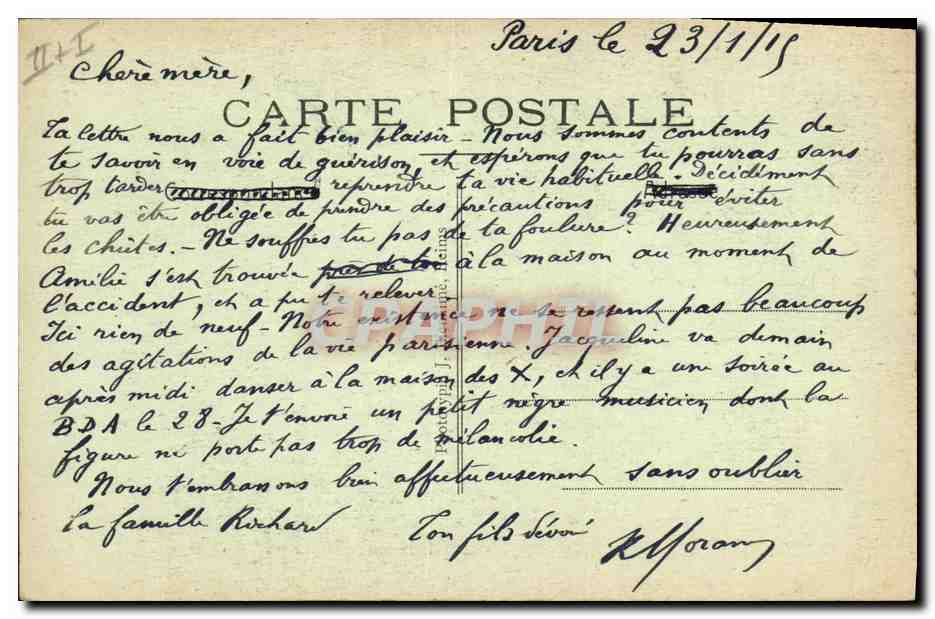 II + I
Paris le 23/1/15
Chère mère,
CARTE POSTALE
Ta lettre nous a fait bien plaisir - Nous sommes contents de
te savoir en voie de guérison, et espérons que tu pourras sans
trop tarder reprendre ta vie habituelle. Décidément
tu vas être obligée de prendre des précautions pour éviter
les chûtes. - Ne souffres tu pas de ta foulure ? Heureusement
Amélie s'est trouvée près de toi à la maison au moment de
l'accident, et a pu te relever.
Ici rien de neuf - Notre existence ne se ressent pas beaucoup
des agitations de la vie parisienne. Jacqueline va demain
après midi danser à la maison des X, et il y a une soirée au
BDA le 28 - Je t'envoie un petit nègre musicien dont la
figure ne porte pas trop de mélancolie.
Nous t'embrassons bien affectueusement sans oublier
la famille Richard
Ton fils dévoué
Phototypie J. Reims
CPAPHIL